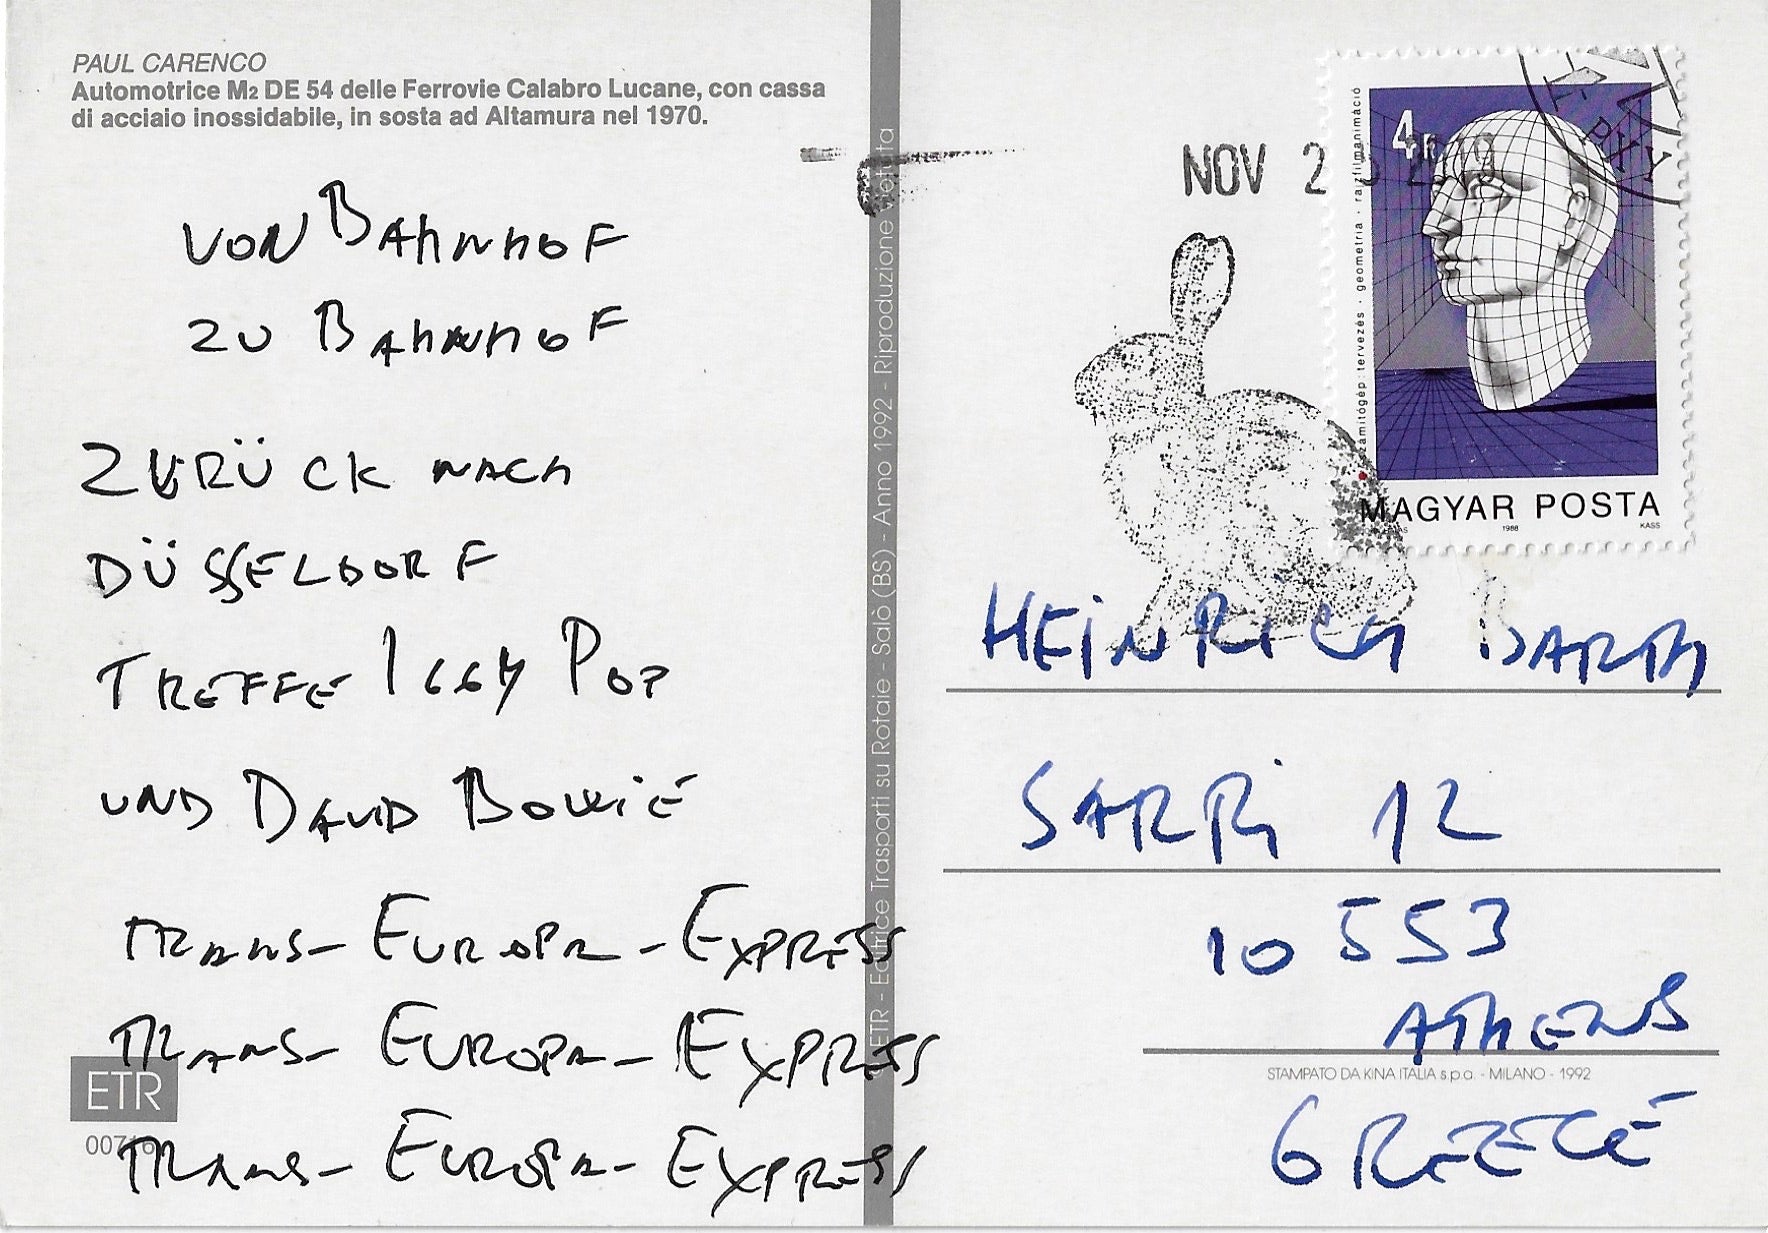 PAUL CARENCO
Automotrice M2 DE 54 delle Ferrovie Calabro Lucane, con cassa
di acciaio inossidabile, in sosta ad Altamura nel 1970.
VON BAHNHOF
ZU BAHNHOF
ZURÜCK NACH
DÜSSELDORF
TREFFE IGGY POP
UND DAVID BOWIE
TRANS-EUROPA-EXPRESS
TRANS-EUROPA-EXPRESS
TRANS-EUROPA-EXPRESS
ETR
00716
ETR - Editrice Trasporti su Rotaie - Salò (BS) - Anno 1992 - Riproduzione vietata
NOV 2
4
számítógép: tervezés · geometria · rajzfilmanimáció
MAGYAR POSTA
1988
KASS
HEINRICH BARTH
SARRI 12
10 553
ATHENS
STAMPATO DA KINA ITALIA s.p.a. - MILANO - 1992
GREECE